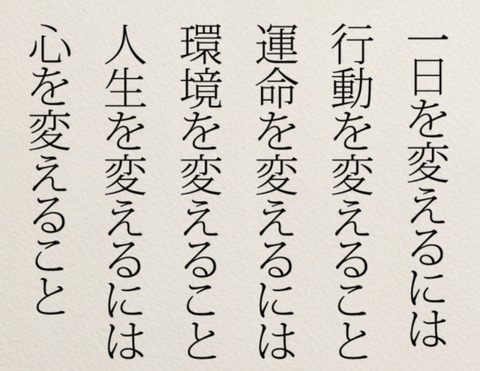 一日を変えるには
行動を変えること
運命を変えるには
環境を変えること
人生を変えるには
心を変えること